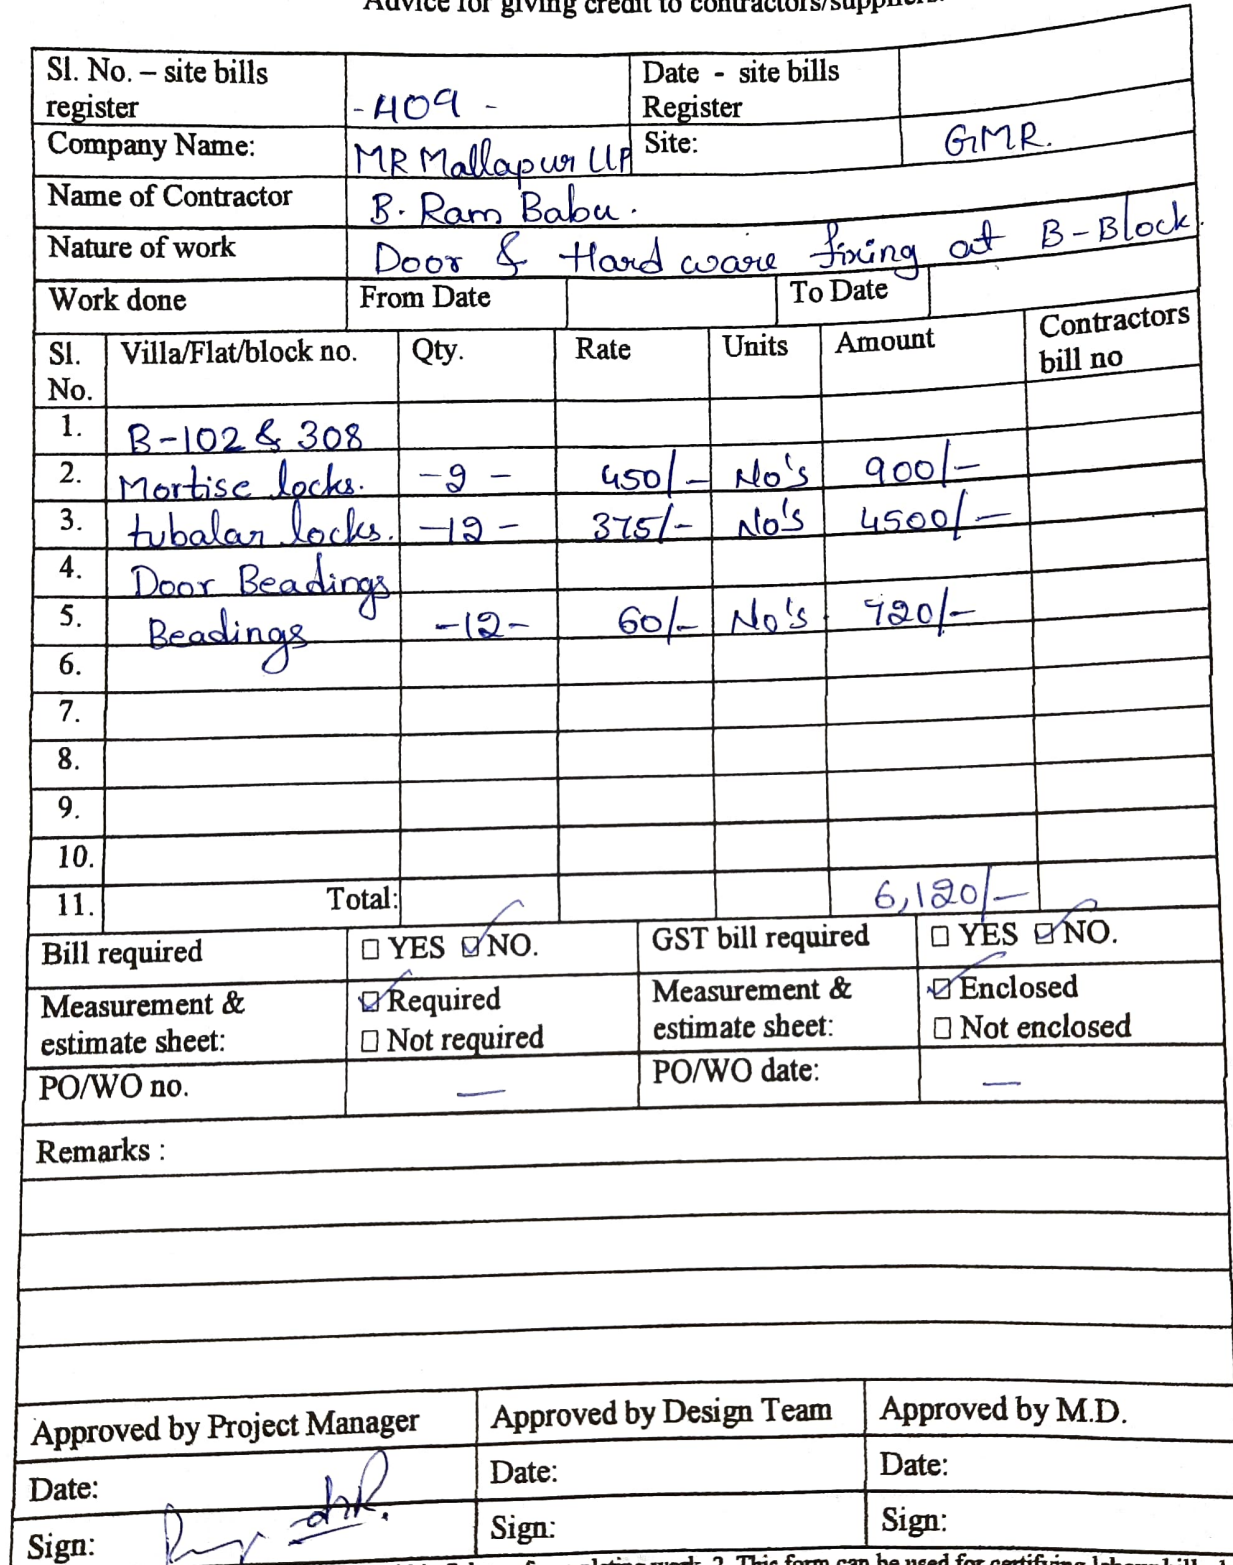 Advice for giving credit to contractors/suppliers.
Sl. No. – site bills register -409- Date - site bills Register
Company Name: MR Mallapur LLP Site: GMR.
Name of Contractor B. Ram Babu.
Nature of work Door & Hard ware fixing at B-Block.
Work done From Date To Date
Sl. No. Villa/Flat/block no. Qty. Rate Units Amount Contractors bill no
1. B-102 & 308
2. Mortise locks. -2- 450/- No's 900/-
3. tubalar locks. -12- 375/- No's 4500/-
4. Door Beadings
5. Beadings -12- 60/- No's 720/-
6.
7.
8.
9.
10.
11. Total: 6,120/-
Bill required ☐ YES ☑ NO. GST bill required ☐ YES ☑ NO.
Measurement & estimate sheet: ☑ Required ☐ Not required Measurement & estimate sheet: ☑ Enclosed ☐ Not enclosed
PO/WO no. — PO/WO date: —
Remarks :
Approved by Project Manager Approved by Design Team Approved by M.D.
Date: Date: Date:
Sign: Sign: Sign:
2. This form can be used for certifying labour bill